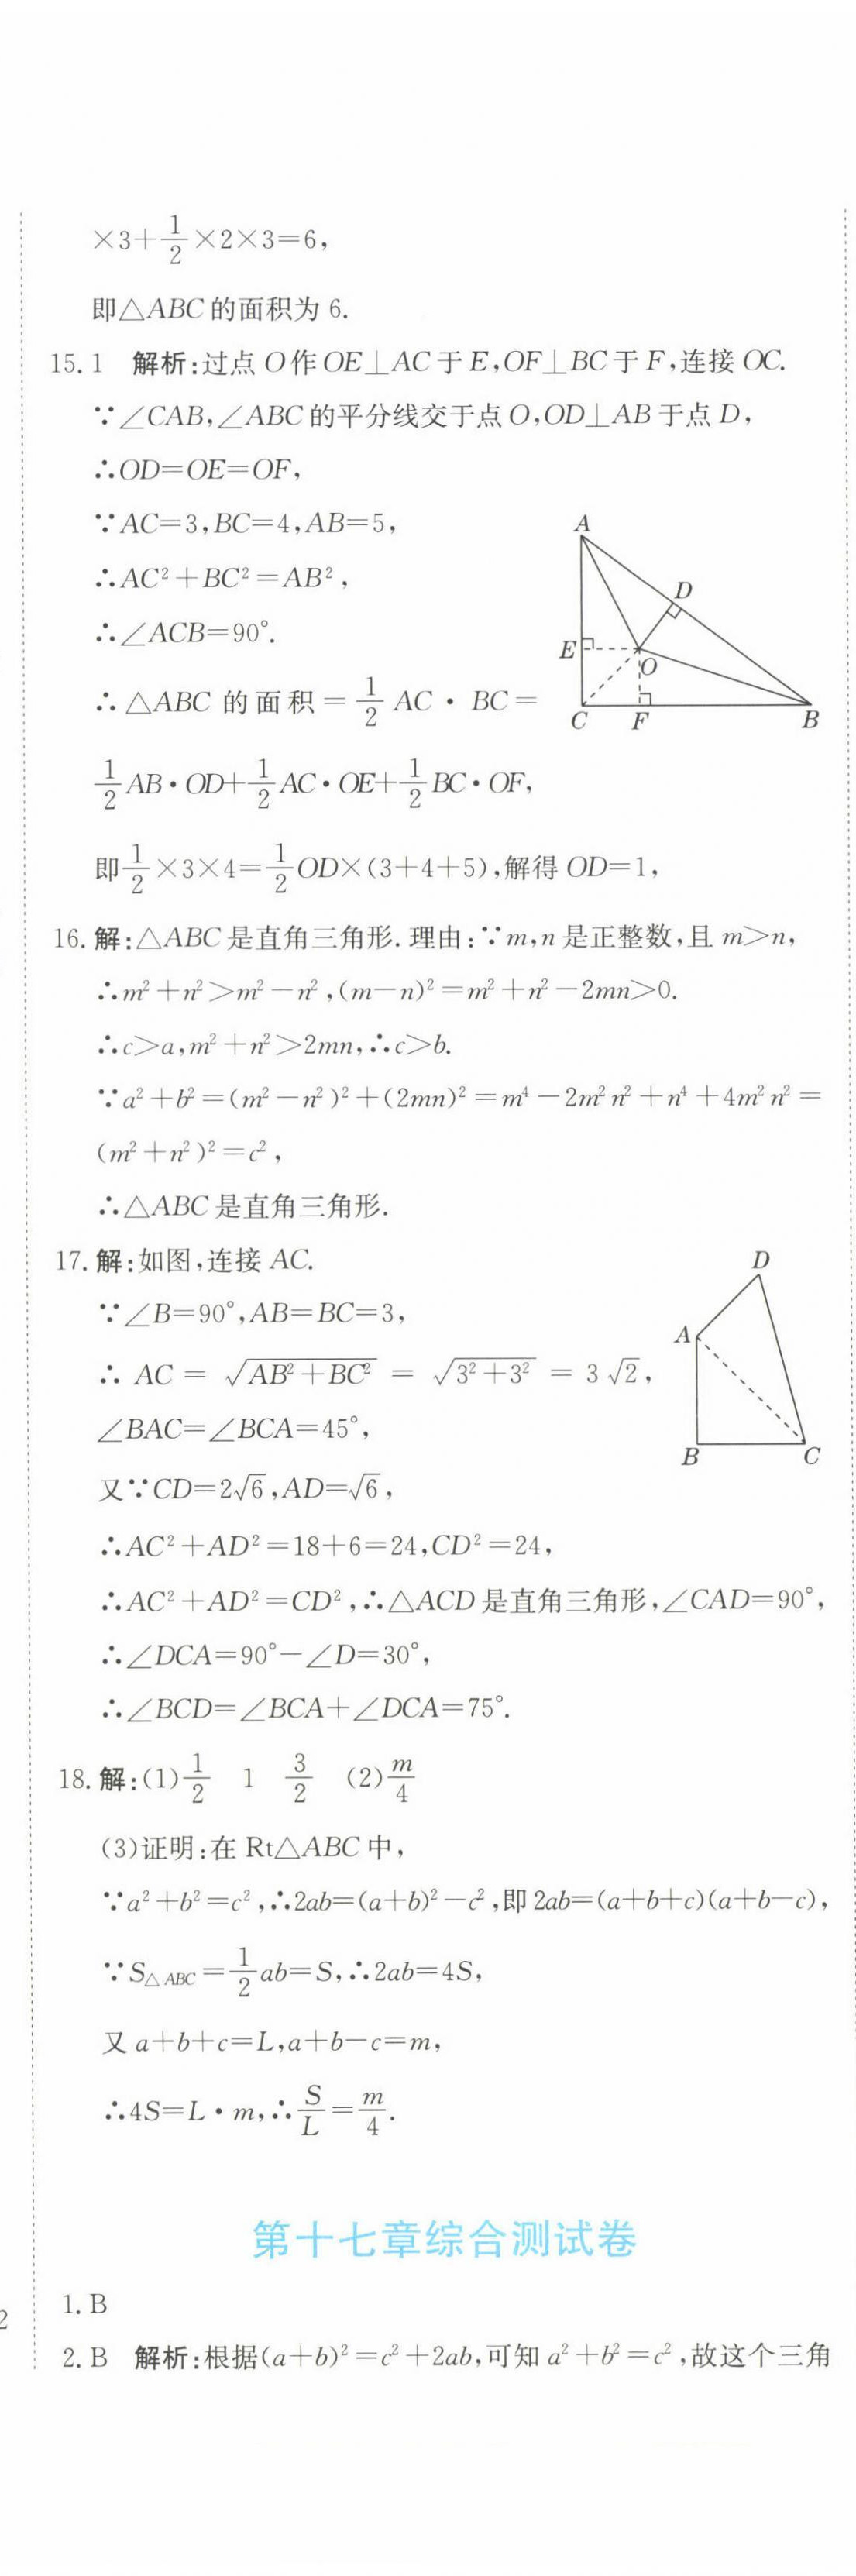 ×3+1/2×2×3=6,
即△ABC的面积为6.
15.1 解析:过点O作OE⊥AC于E,OF⊥BC于F,连接OC.
∵∠CAB,∠ABC的平分线交于点O,OD⊥AB于点D,
∴OD=OE=OF,
∵AC=3,BC=4,AB=5,
∴AC²+BC²=AB²,
∴∠ACB=90°.
∴△ABC的面积=1/2 AC·BC=
1/2 AB·OD+1/2 AC·OE+1/2 BC·OF,
即1/2×3×4=1/2 OD×(3+4+5),解得OD=1,
A
D
E
O
C
F
B
16.解:△ABC是直角三角形.理由:∵m,n是正整数,且m>n,
∴m²+n²>m²-n²,(m-n)²=m²+n²-2mn>0.
∴c>a,m²+n²>2mn,∴c>b.
∵a²+b²=(m²-n²)²+(2mn)²=m⁴-2m²n²+n⁴+4m²n²=
(m²+n²)²=c²,
∴△ABC是直角三角形.
17.解:如图,连接AC.
∵∠B=90°,AB=BC=3,
∴AC=√(AB²+BC²)=√(3²+3²)=3√2,
∠BAC=∠BCA=45°,
又∵CD=2√6,AD=√6,
∴AC²+AD²=18+6=24,CD²=24,
∴AC²+AD²=CD²,∴△ACD是直角三角形,∠CAD=90°,
∴∠DCA=90°-∠D=30°,
∴∠BCD=∠BCA+∠DCA=75°.
D
A
B
C
18.解:(1)1/2 1 3/2 (2)m/4
(3)证明:在Rt△ABC中,
∵a²+b²=c²,∴2ab=(a+b)²-c²,即2ab=(a+b+c)(a+b-c),
∵S△ABC=1/2 ab=S,∴2ab=4S,
又a+b+c=L,a+b-c=m,
∴4S=L·m,∴S/L=m/4.
第十七章综合测试卷
1.B
2.B 解析:根据(a+b)²=c²+2ab,可知a²+b²=c²,故这个三角
2